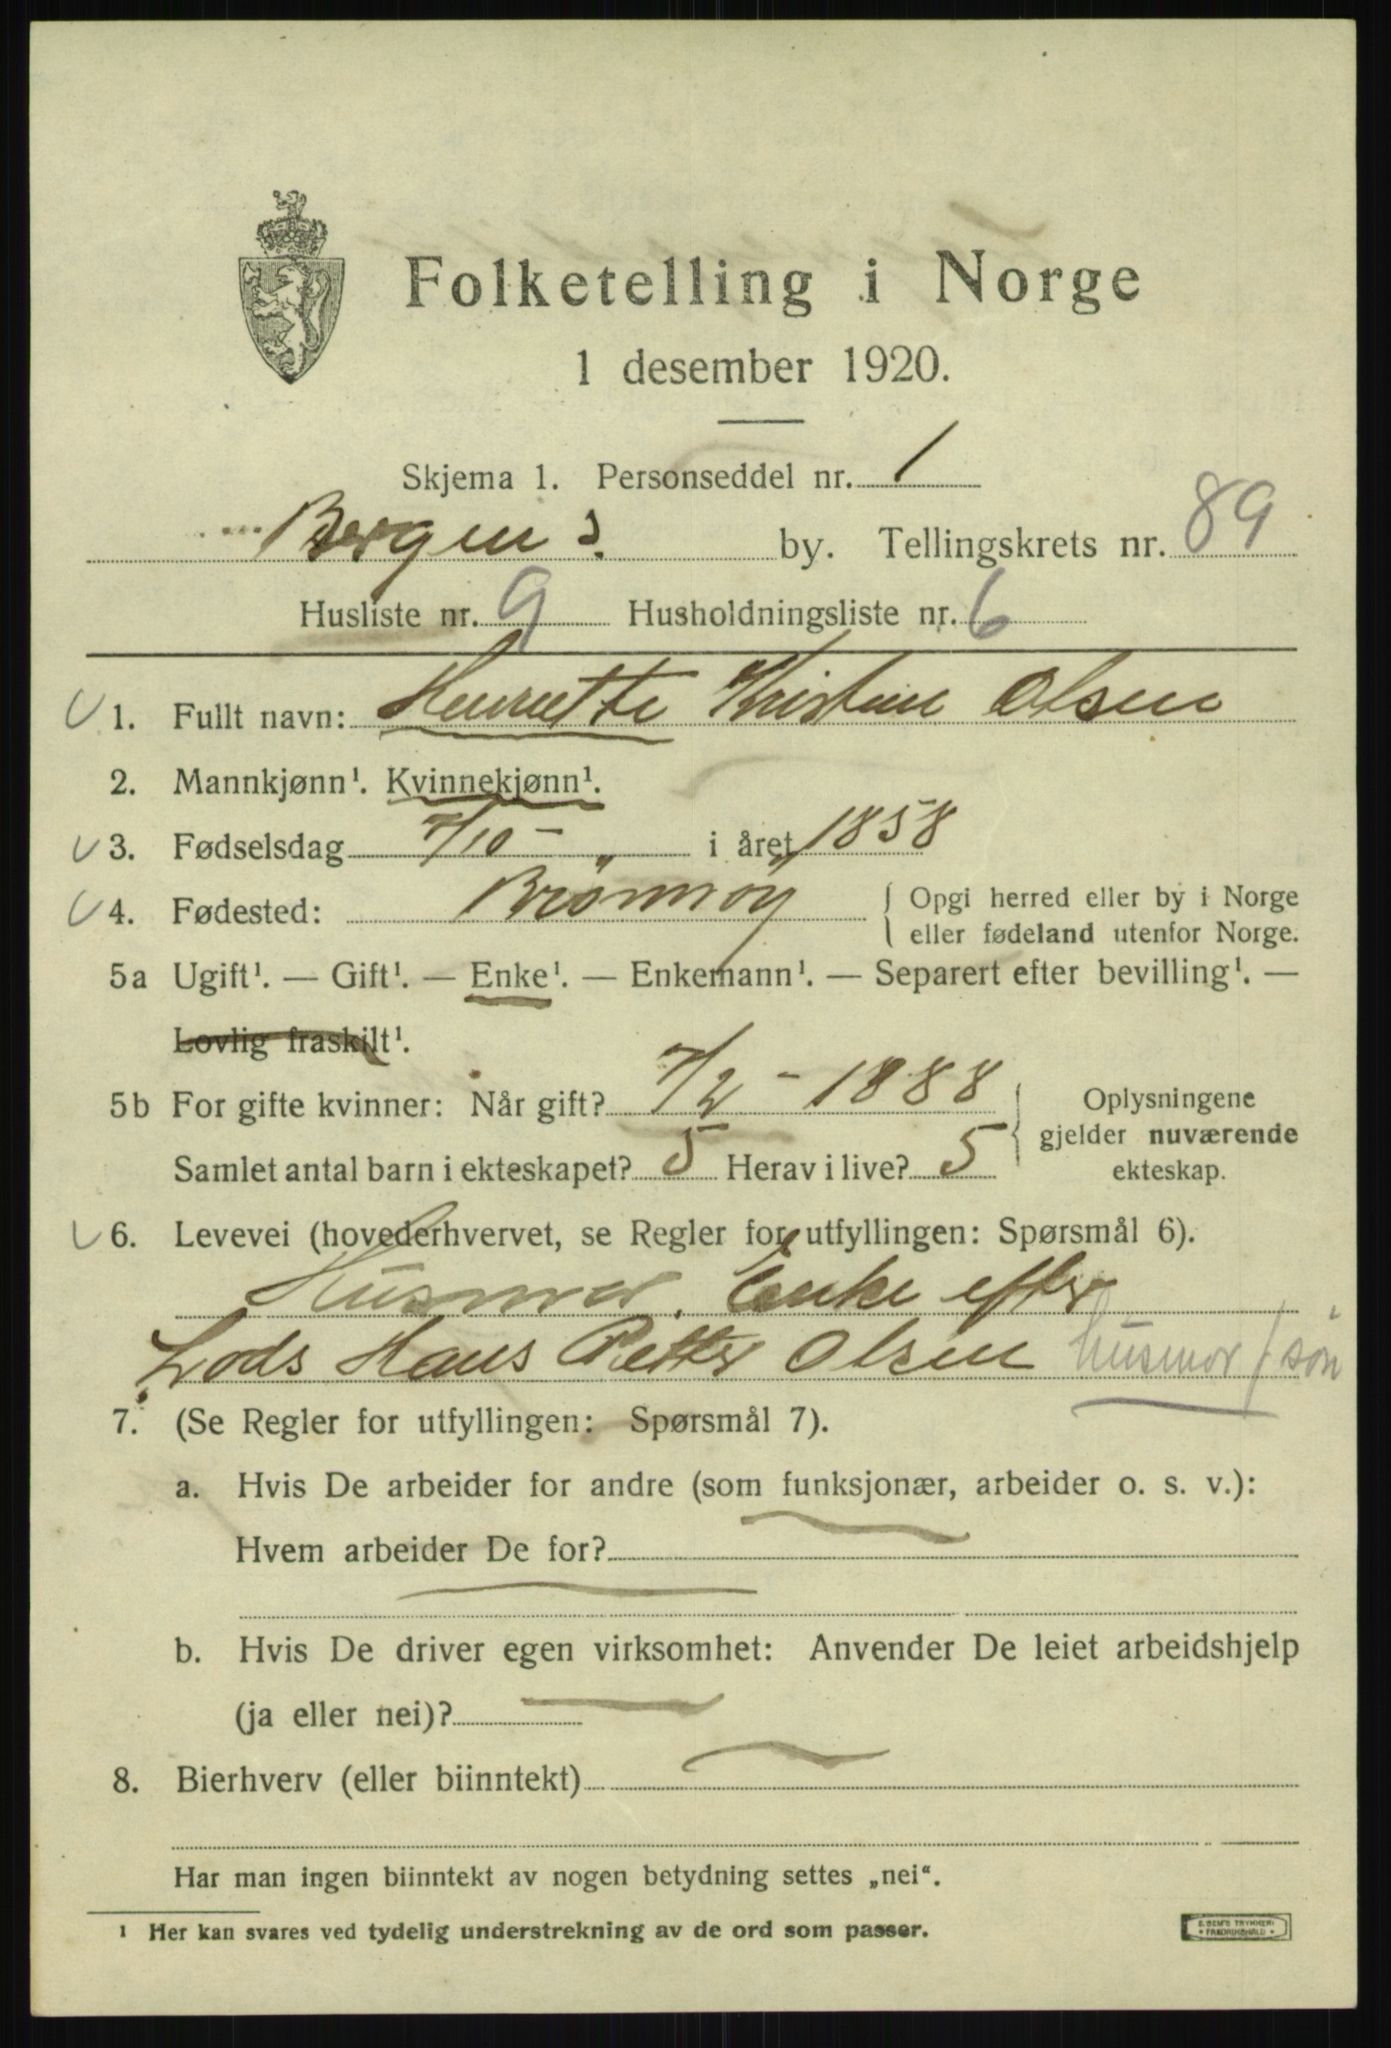 Folketelling i Norge
1 desember 1920.
Skjema 1. Personseddel nr. 1
Bergens by. Tellingskrets nr. 89
Husliste nr. 9 Husholdningsliste nr. 6
1. Fullt navn: Henriette Kristine Olsen
2. Mannkjønn¹. Kvinnekjønn¹.
3. Fødselsdag 7/10 - i året 1858
4. Fødested: Brønnøy { Opgi herred eller by i Norge
eller fødeland utenfor Norge.
5a Ugift¹. — Gift¹. — Enke¹. — Enkemann¹. — Separert efter bevilling¹. —
Lovlig fraskilt¹.
5b For gifte kvinner: Når gift? 7/2 - 1888 { Oplysningene
gjelder nuværende
ekteskap.
Samlet antal barn i ekteskapet? 5 Herav i live? 5
6. Levevei (hovederhvervet, se Regler for utfyllingen: Spørsmål 6).
Husmor. Enke efter
Lods Hans Petter Olsen husmor / søn
7. (Se Regler for utfyllingen: Spørsmål 7).
a. Hvis De arbeider for andre (som funksjonær, arbeider o. s. v.):
Hvem arbeider De for?
b. Hvis De driver egen virksomhet: Anvender De leiet arbeidshjelp
(ja eller nei)?
8. Bierhverv (eller biinntekt)
Har man ingen biinntekt av nogen betydning settes „nei“.
¹ Her kan svares ved tydelig understrekning av de ord som passer.
E. SEM'S TRYKKERI
• FREDRIKSHALD •